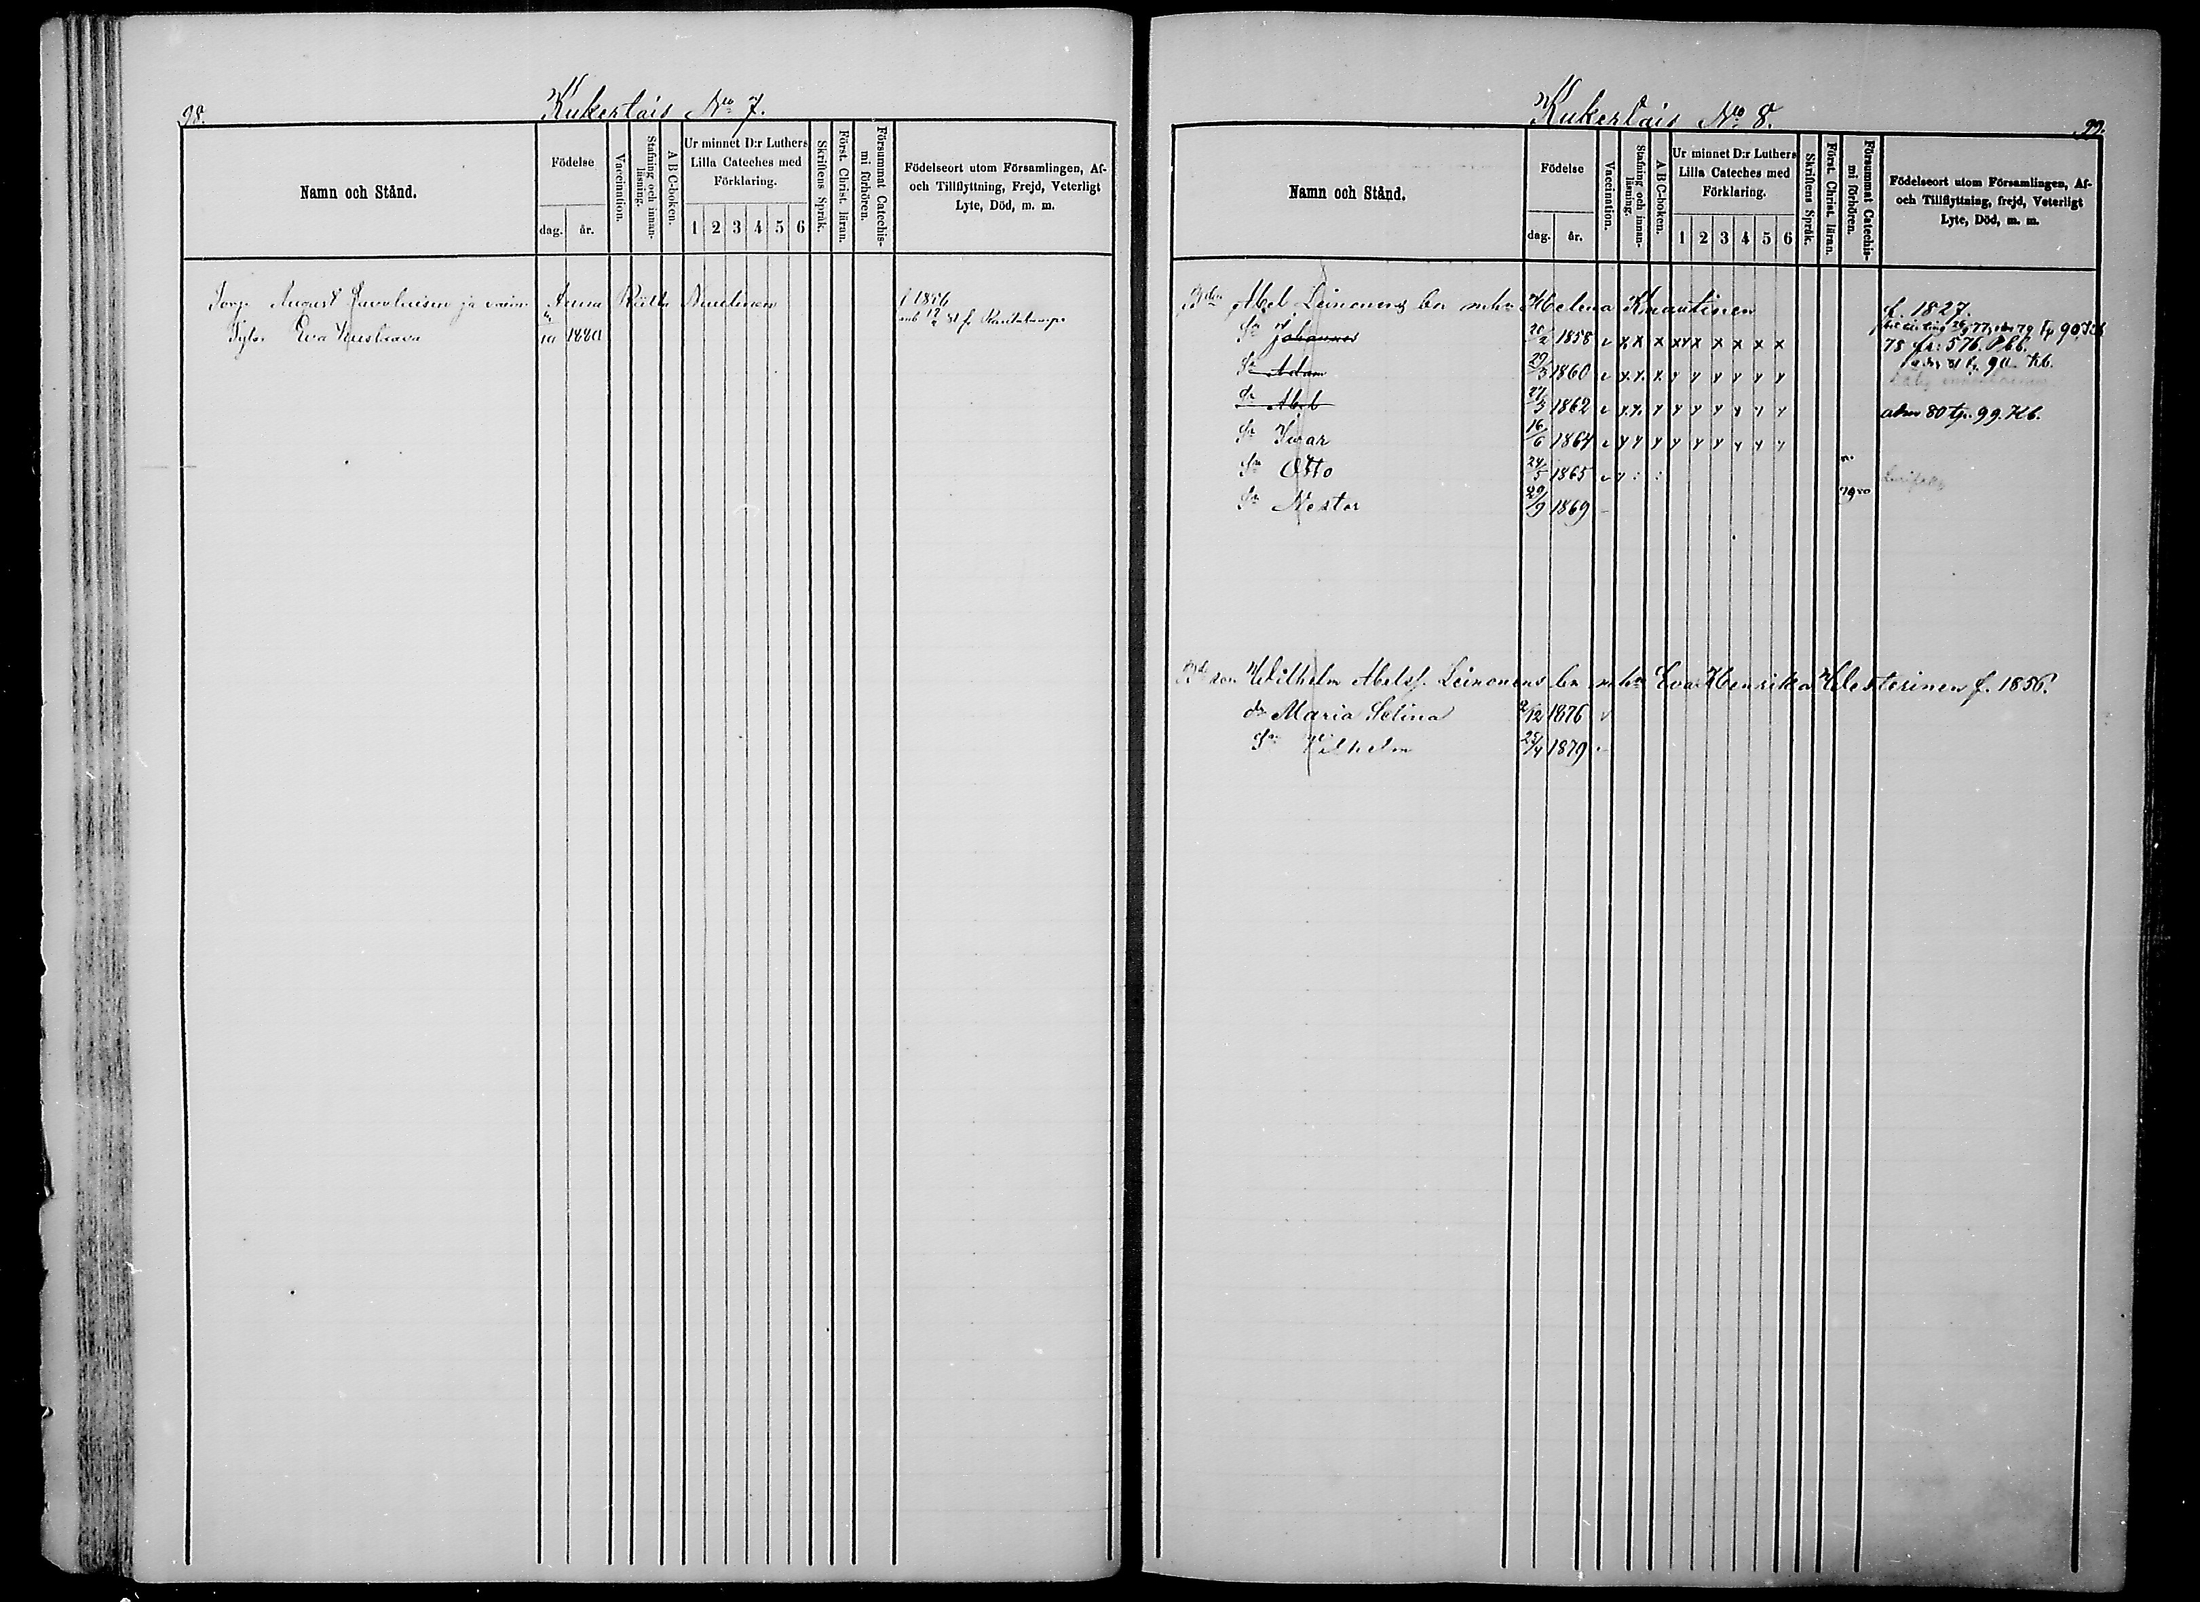 98.
Kukerlais No 7.
Namn och Stånd.
Födelse
dag.
år.
Vaccination.
Stafning och innan-
läsning.
A B C-boken.
Ur minnet D:r Luthers
Lilla Cateches med
Förklaring.
1 2 3 4 5 6
Skriftens Språk.
Först. Christ. läran.
Försummat Catechis-
mi förhören.
Födelseort utom Församlingen, Af-
och Tillflyttning, Frejd, Veterligt
Lyte, Död, m. m.
August ja Anna
Eva 1880
Kukerlais No 8.
99.
Namn och Stånd.
Födelse
dag.
år.
Vaccination.
Stafning och innan-
läsning.
A B C-boken.
Ur minnet D:r Luthers
Lilla Cateches med
Förklaring.
1 2 3 4 5 6
Skriftens Språk.
Först. Christ. läran.
Försummat Catechis-
mi förhören.
Födelseort utom Församlingen, Af-
och Tillflyttning, frejd, Veterligt
Lyte, Död, m. m.
Abel Leinonens Helena Knautinen f. 1827.
Sn Johannes 20/2 1858 v x x x x x x x x x
78 576.
Sn Adam 29/3 1860 v
dr Abel 27/3 1862 v 80 99. Kb.
Sn Ivar 16/6 1864 v
Sn Otto 24/5 1865 v
Sn Nestor 29/9 1869
Wilhelm Abelsf. Leinonens Eva Henrika Westerinen f. 1856.
dr Maria Selina 2/12 1876 v
Sn Vilhelm 25/4 1879